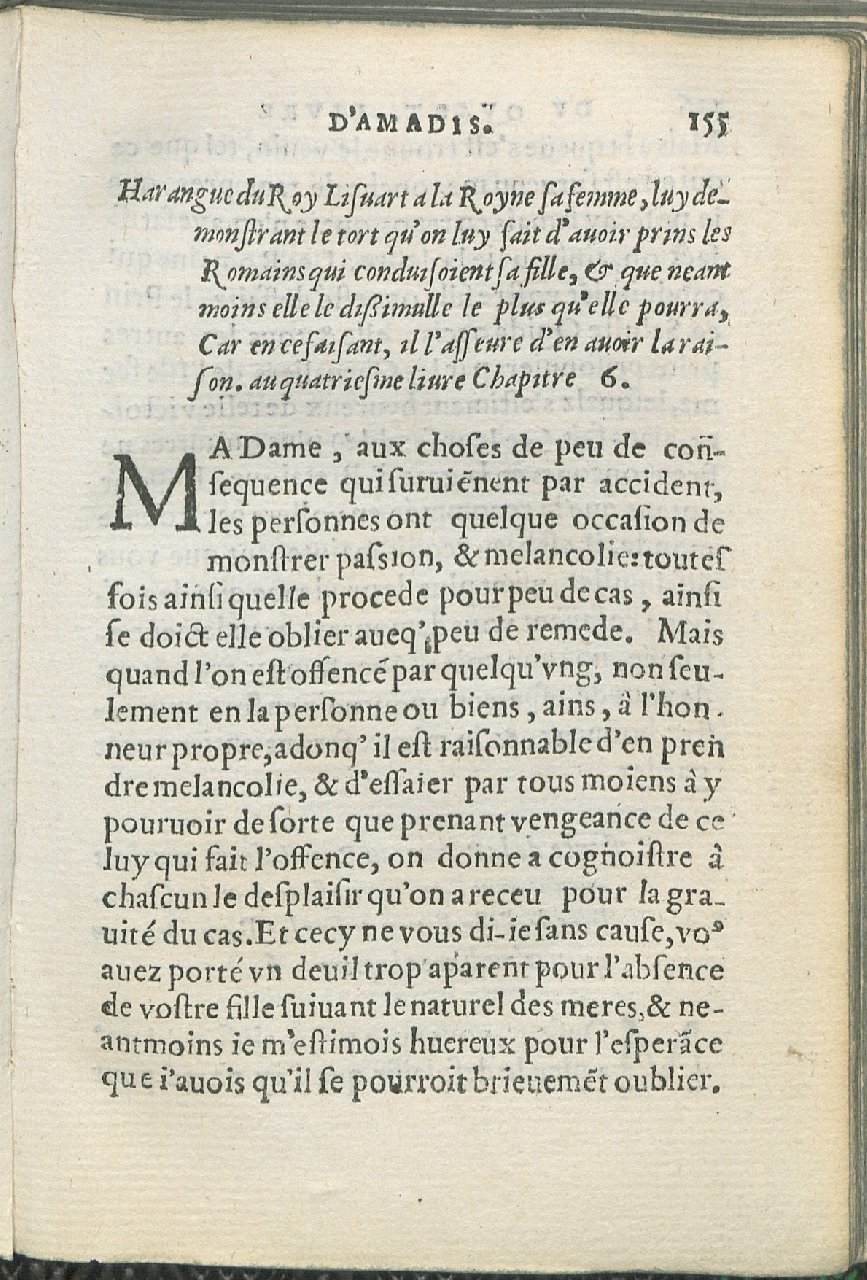 D'AMADIS. 155
Harangue du Roy Lisuart a la Royne sa femme, luy de-
monſtrant le tort qu'on luy fait d'auoir prins les
Romains qui conduiſoient ſa fille, & que neant
moins elle le diſſimulle le plus qu'elle pourra,
Car en ce faiſant, il l'aſſeure d'en auoir la rai-
ſon. au quatrieſme liure Chapitre 6.
MA Dame, aux choſes de peu de con-
ſequence qui ſuruiẽnent par accident,
les perſonnes ont quelque occaſion de
monſtrer paſsion, & melancolie: toutes
fois ainſi quelle procede pour peu de cas, ainſi
ſe doict elle oblier aueq' peu de remede. Mais
quand l'on eſt offencé par quelqu'vng, non ſeu-
lement en la perſonne ou biens, ains, à l'hon-
neur propre, adonq' il eſt raiſonnable d'en pren
dre melancolie, & d'eſſaier par tous moiens à y
pouruoir de ſorte que prenant vengeance de ce
luy qui fait l'offence, on donne a cognoiſtre à
chaſcun le deſplaiſir qu'on a receu pour la gra-
uité du cas. Et cecy ne vous di-ie ſans cauſe, voꝰ
auez porté vn deuil trop aparent pour l'abſence
de voſtre fille ſuiuant le naturel des meres, & ne-
antmoins ie m'eſtimois huereux pour l'eſperãce
que i'auois qu'il ſe pourroit brieuemẽt oublier.